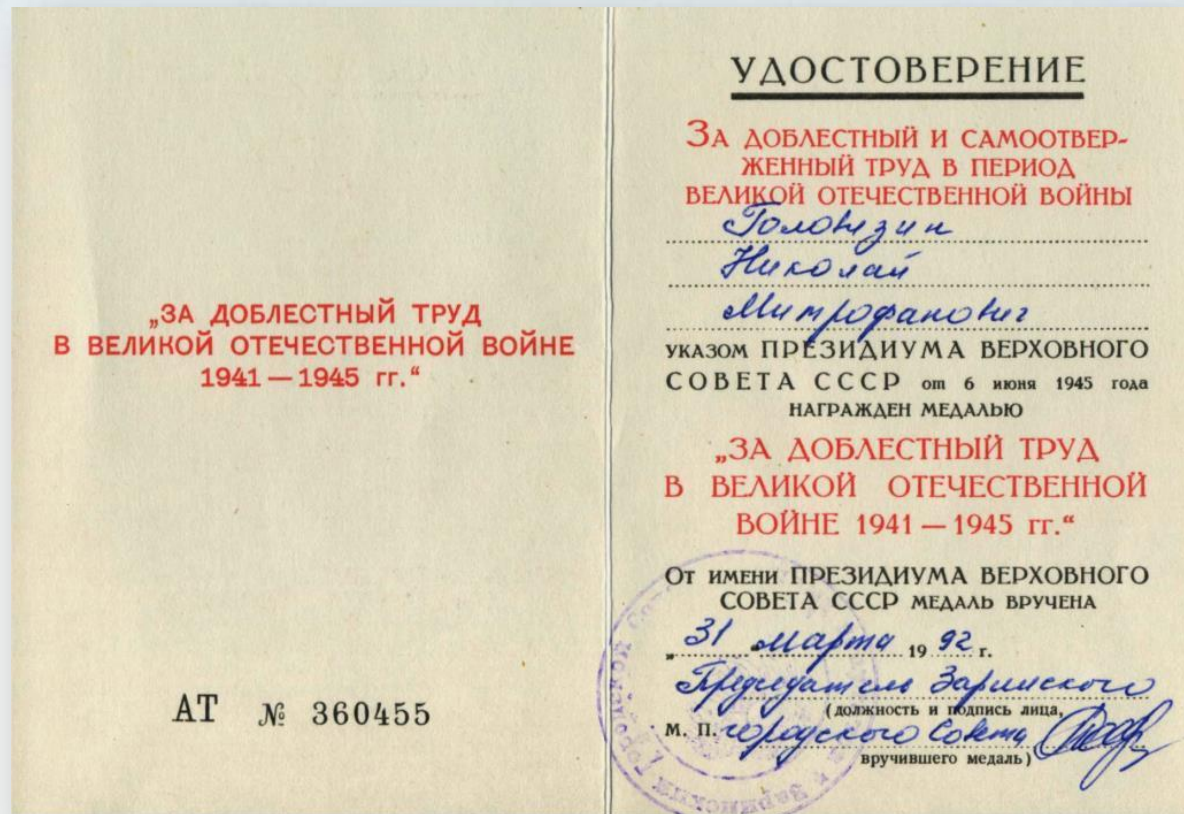 „ЗА ДОБЛЕСТНЫЙ ТРУД
В ВЕЛИКОЙ ОТЕЧЕСТВЕННОЙ ВОЙНЕ
1941 — 1945 гг.“
АТ № 360455
УДОСТОВЕРЕНИЕ
ЗА ДОБЛЕСТНЫЙ И САМООТВЕР-
ЖЕННЫЙ ТРУД В ПЕРИОД
ВЕЛИКОЙ ОТЕЧЕСТВЕННОЙ ВОЙНЫ
Головизин
Николай
Митрофанович
УКАЗОМ ПРЕЗИДИУМА ВЕРХОВНОГО
СОВЕТА СССР от 6 июня 1945 года
НАГРАЖДЕН МЕДАЛЬЮ
„ЗА ДОБЛЕСТНЫЙ ТРУД
В ВЕЛИКОЙ ОТЕЧЕСТВЕННОЙ
ВОЙНЕ 1941 — 1945 гг.“
ОТ ИМЕНИ ПРЕЗИДИУМА ВЕРХОВНОГО
СОВЕТА СССР МЕДАЛЬ ВРУЧЕНА
„31 “ марта 1992 г.
Председатель Заринского
(должность и подпись лица,
М. П. городского Совета
вручившего медаль)